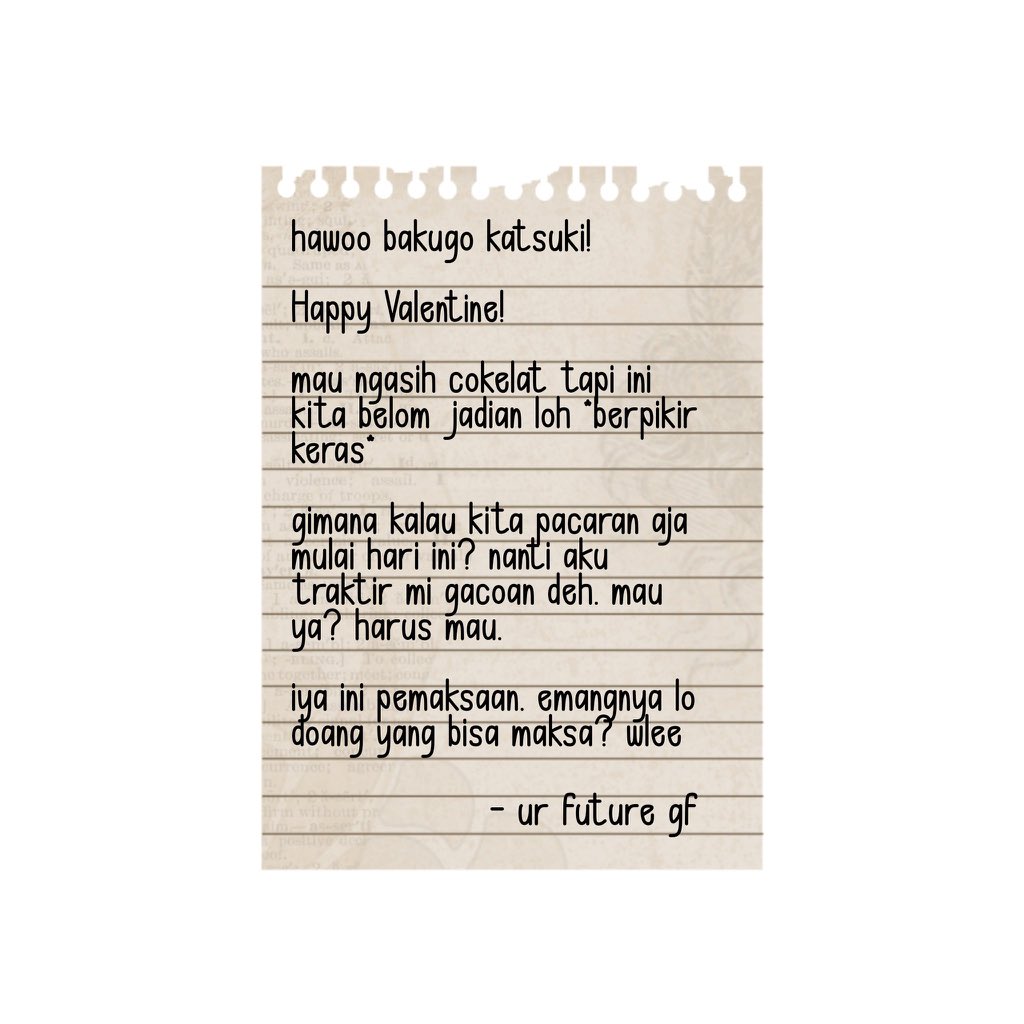 hawoo bakugo katsuki!
Happy Valentine!
mau ngasih cokelat tapi ini
kita belom jadian loh *berpikir
keras*
gimana kalau kita pacaran aja
mulai hari ini? nanti aku
traktir mi gacoan deh. mau
ya? harus mau.
iya ini pemaksaan. emangnya lo
doang yang bisa maksa? wlee
- ur future gf